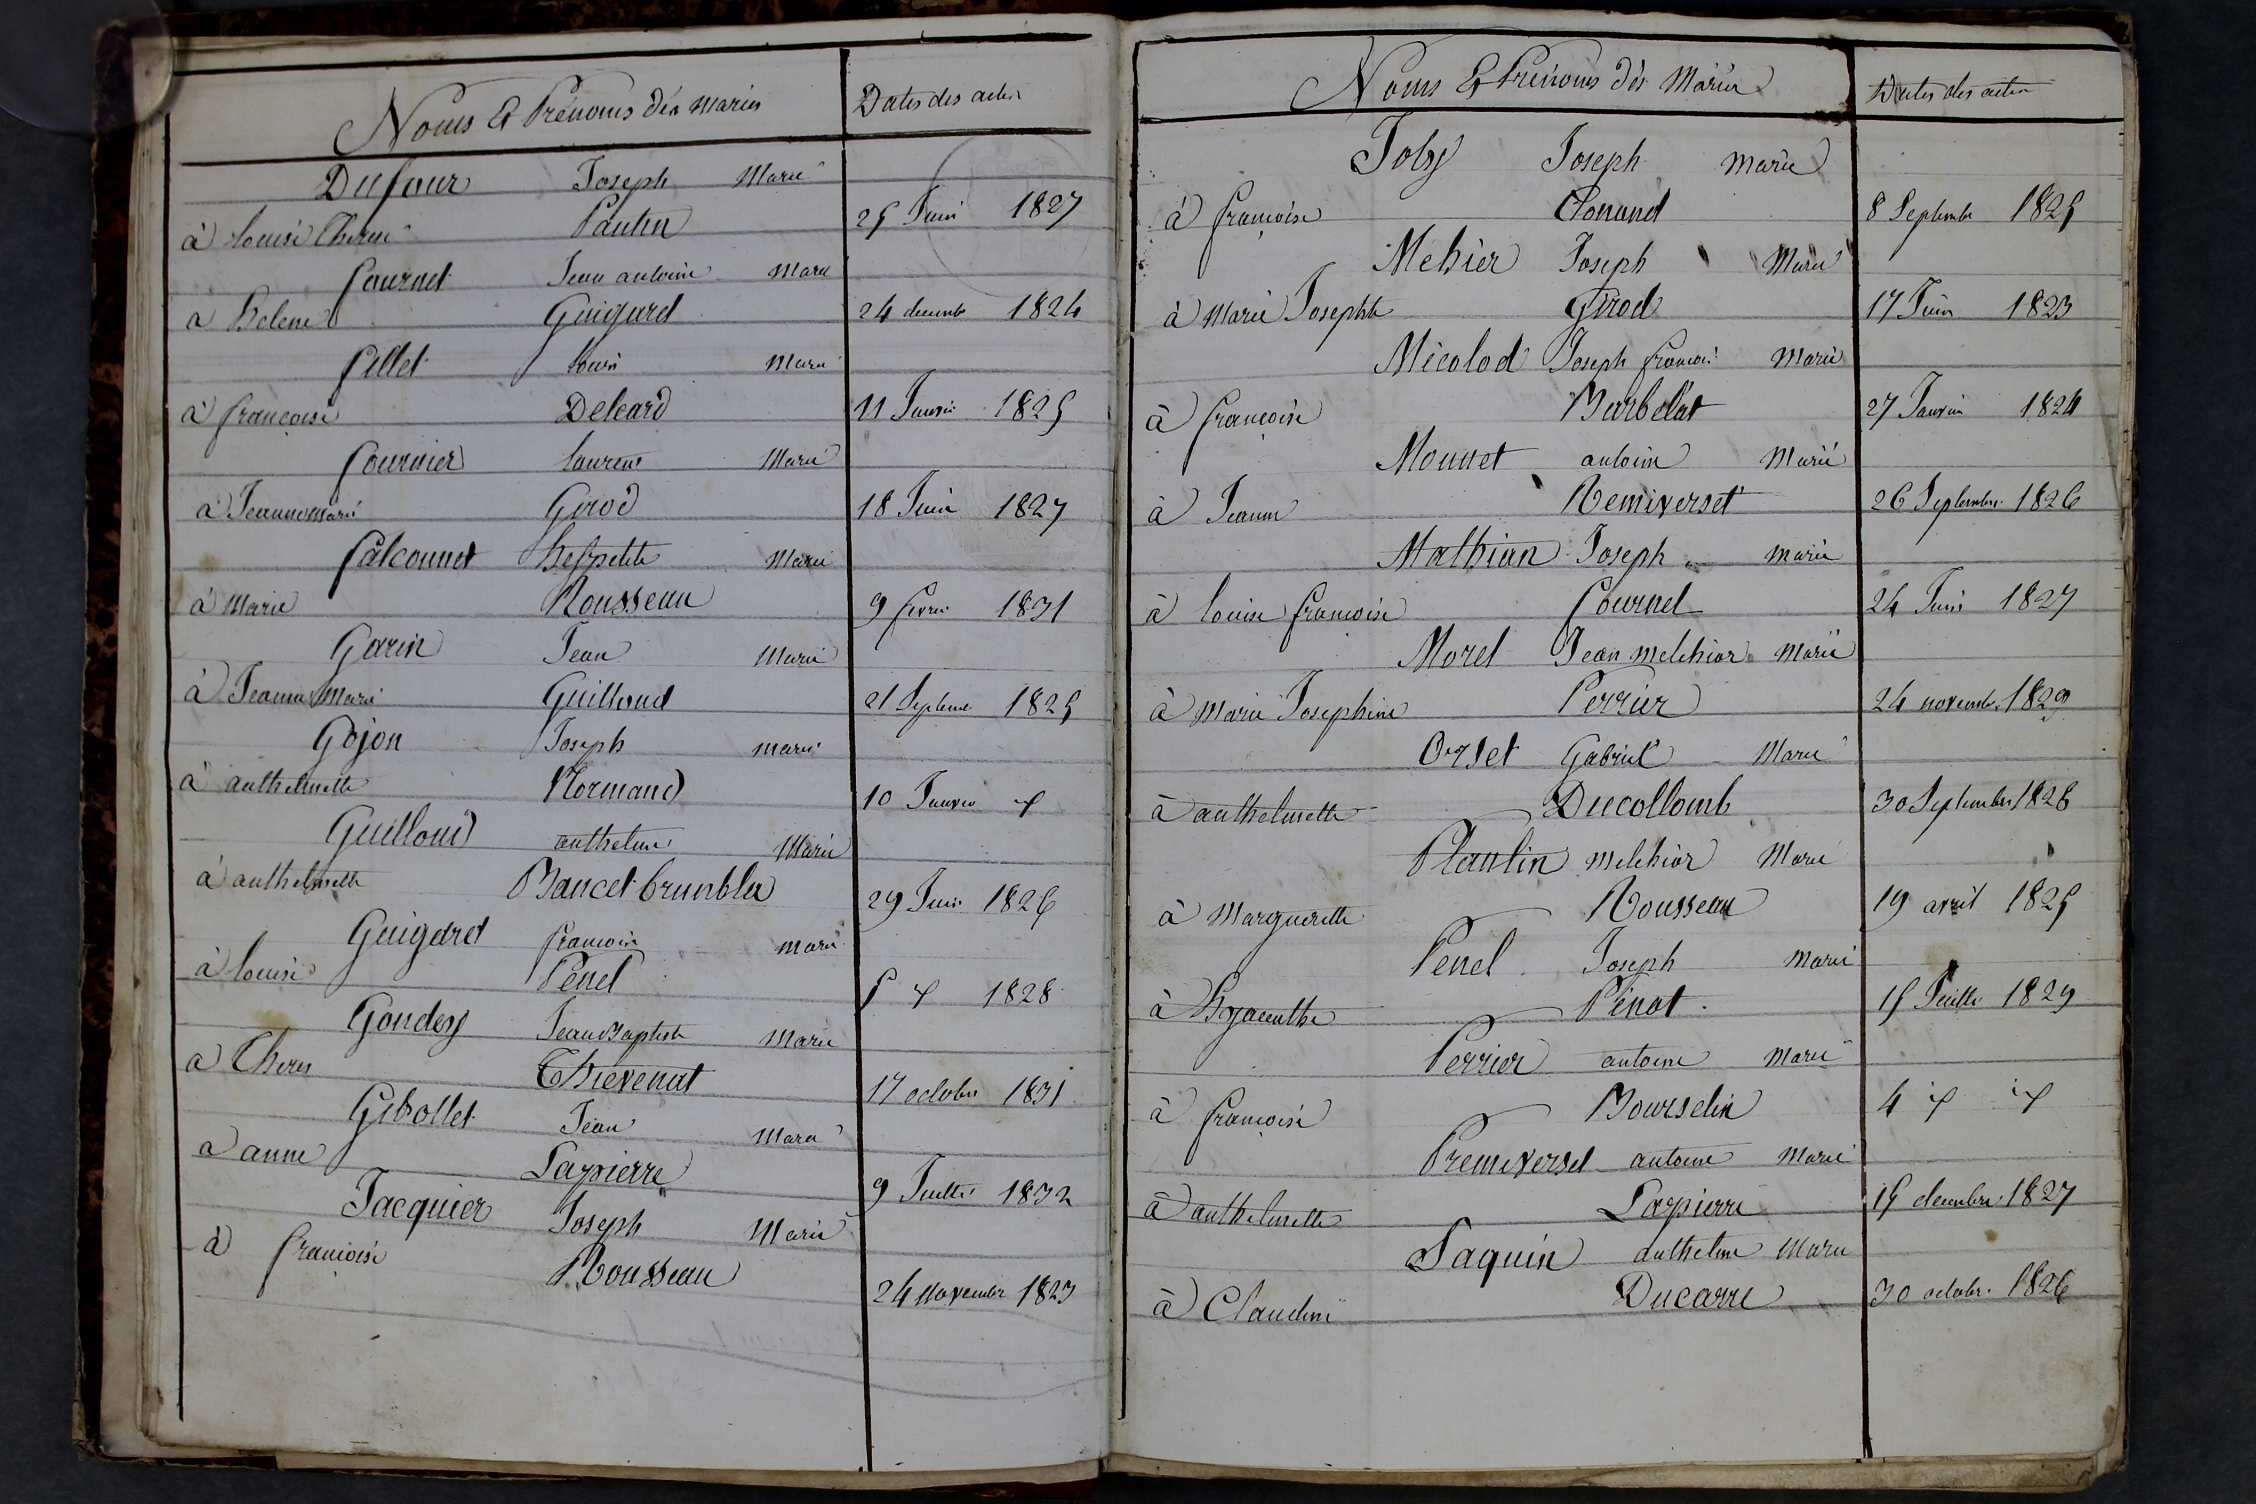 Noms Et Prénoms dés Mariés
Dates des actes
Dufour Joseph Marié
à louise Therese Pantin 25 Juin 1827
fournet Jean antoine Marié
à helene Guigard 24 decembr 1824
fillet louis Marié
à francoise Deleard 11 Janvier 1825
fournier laurent Marié
à Jeanne Marie Girod 18 Juin 1827
falconnet Marié
à Marie Rousseau 9 fevrier 1831
Garin Jean Marié
à Jeanne Marie Guilloud 21 Septembre 1825
Gojon Joseph marié
à anthelmette Normand 10 Janvier
Guilloud anthelme Marié
à anthelmette Bancet 29 Juin 1826
Guigard francois marié
à louise Penel 5 1828
Goudey Jean Baptiste Marié
a Therese Thievenat 17 octobre 1831
Gibollet Jean Marié
a anne Lapierre 9 Juillet 1832
Jacquier Joseph Marié
à francoise Rousseau 24 Novembre 1823
Noms Et Prénoms dés Mariés
Dates des actes
Joly Joseph Marié
à françoise Clonand 8 Septembre 1825
Mehier Joseph Marié
à Marie Josephte Girod 17 Juin 1823
Micolod Joseph francois Marié
à francoise Barbelat 27 Janvier 1824
Monnet antoine Marié
à Jeanne Remiverset 26 Septembre 1826
Mathian Joseph marié
à louise francoise fournet 24 Juin 1827
Morel Jean melchior Marié
à Marie Josephine Perrier 24 novembr. 1829
Orset Gabriel Marié
à anthelmette Ducollomb 30 Septembre 1826
Plantin melchior Marié
à Marguerette Rousseau 19 avril 1825
Penel Joseph Marié
à hyacenthe Pénot 15 Juillet 1829
Perrier antoine Marié
à francoise Bourselin 4
Premeverset antoine Marié
à anthelmette Lapierre 15 decembre 1827
Saquin anthelme Marié
à Claudine Ducarre 30 octobr. 1826